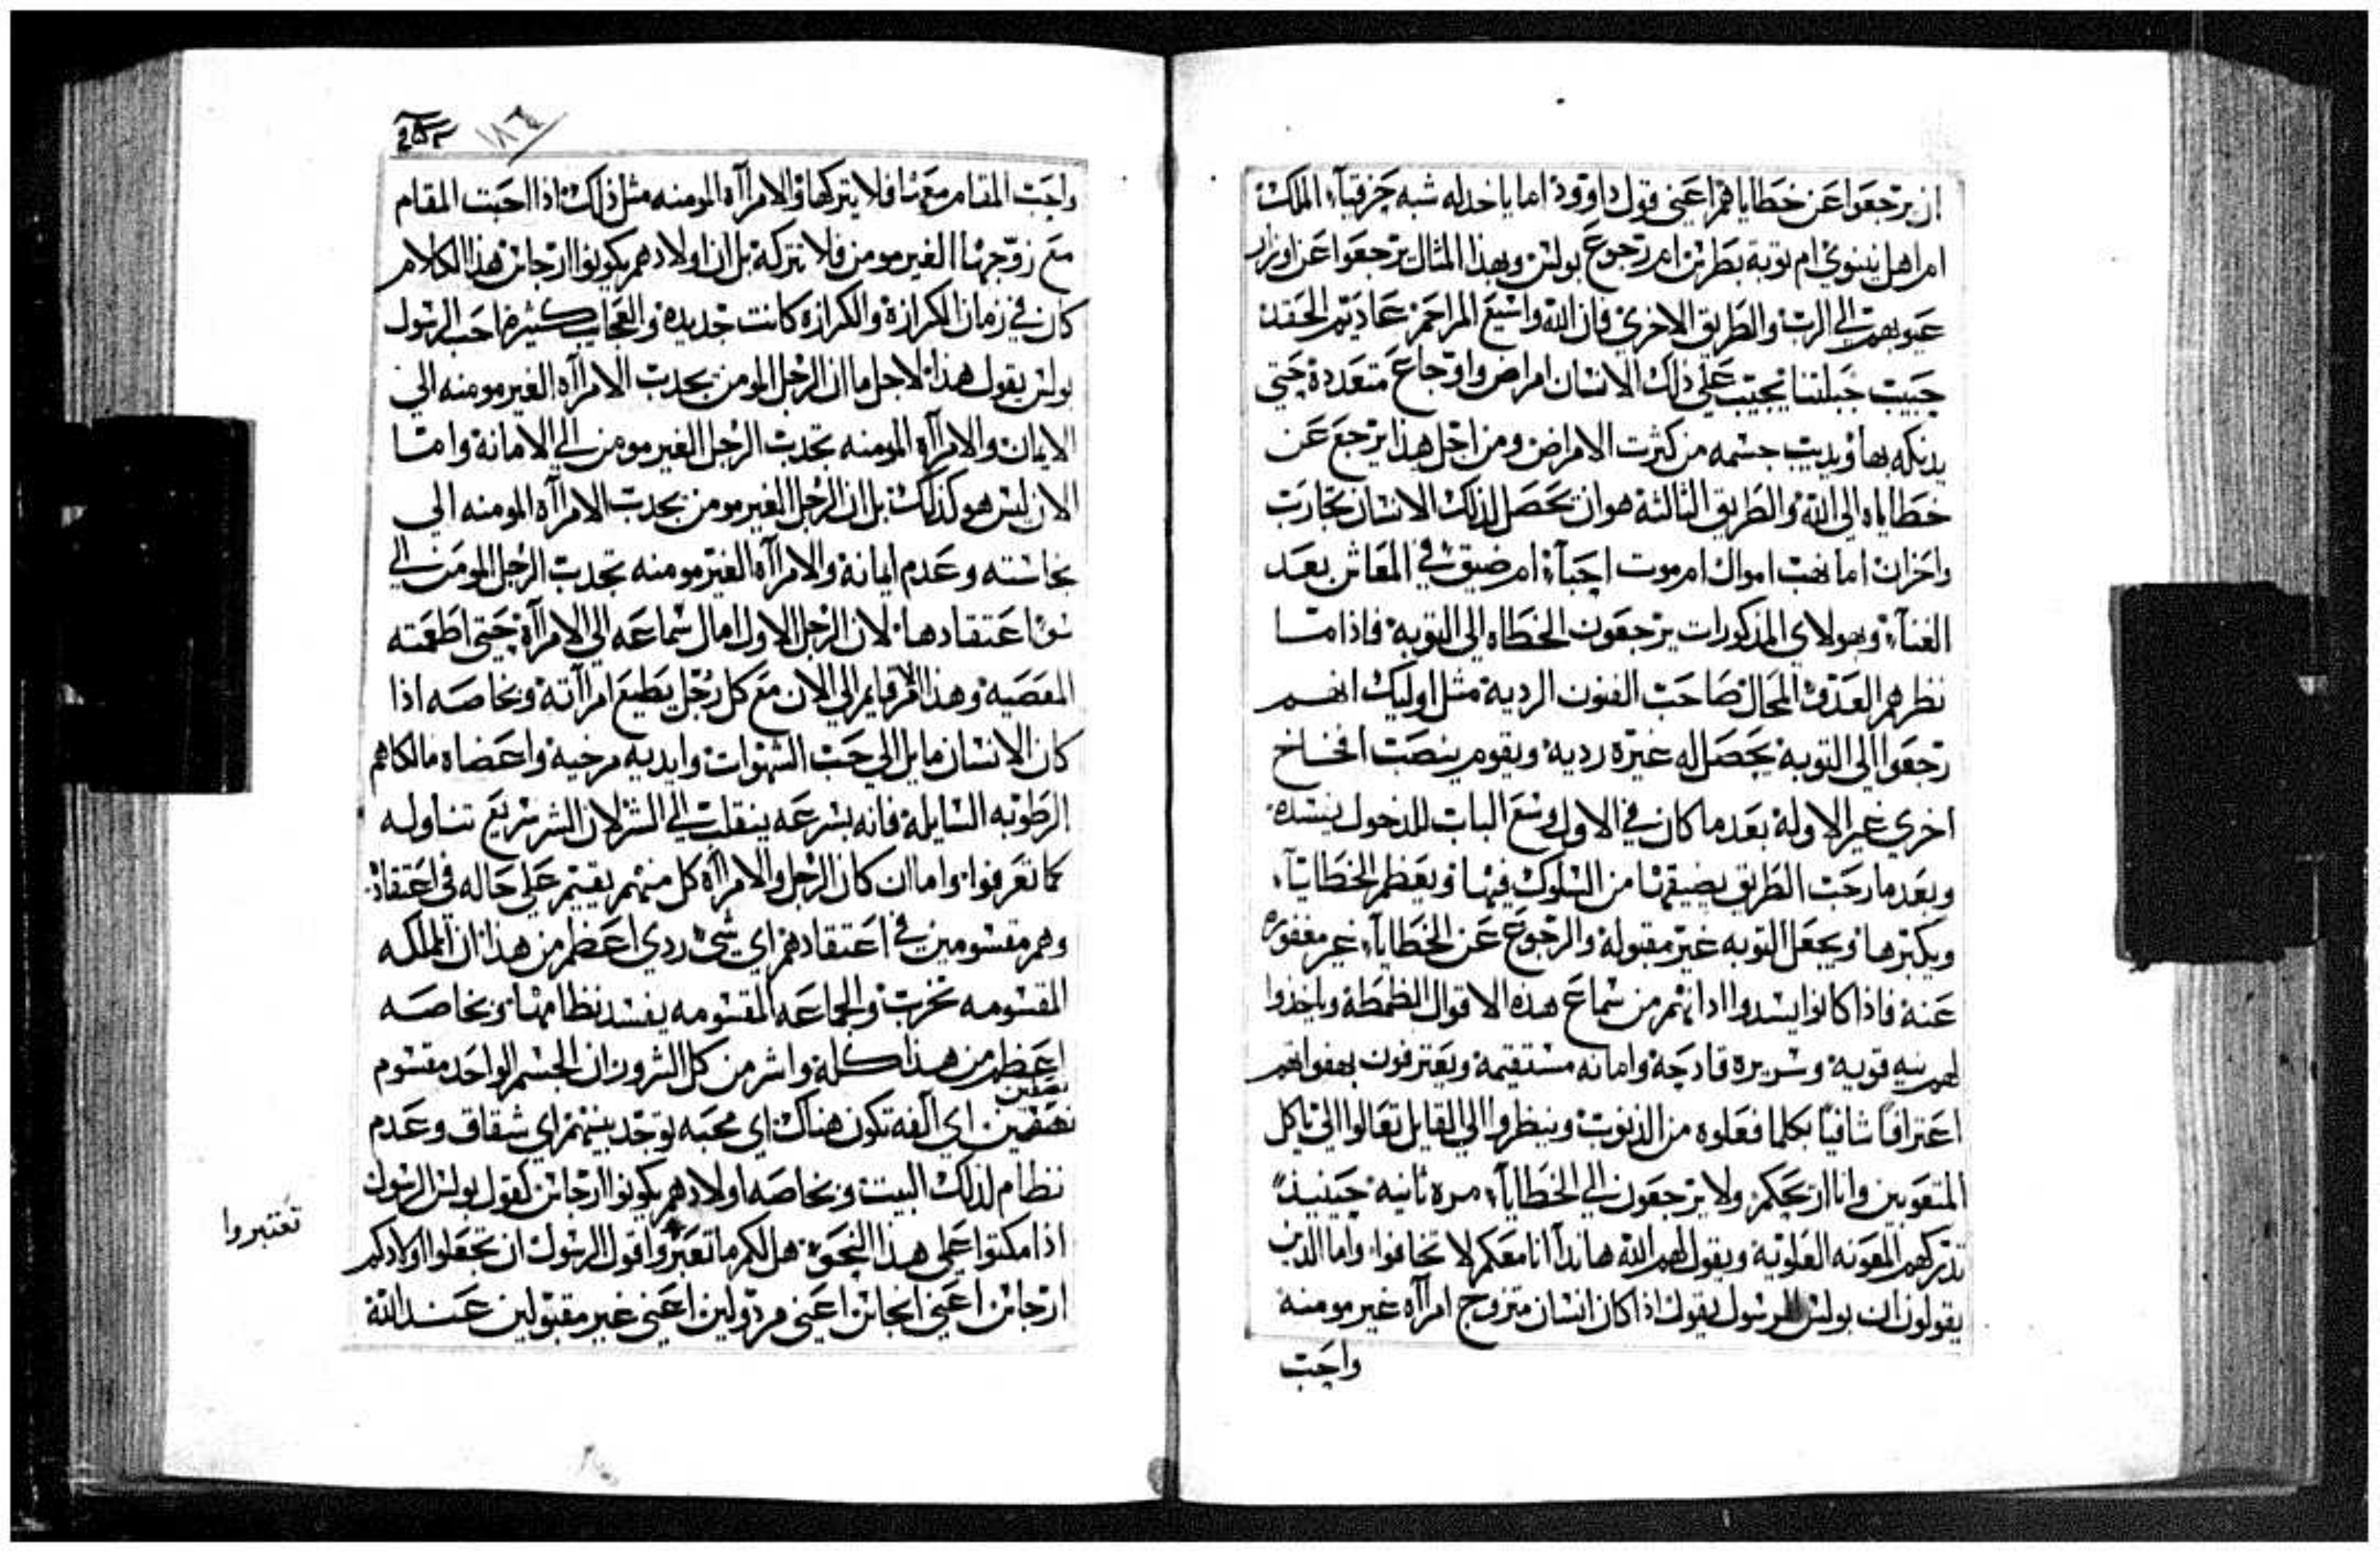 ان يرجعوا عن خطاياهم اعني قول داوود اما ياخد له شبه حزقيآء الملك
ام اهل نينوي ام توبة بطرس ام رجوع بولس وبهذا المثال يرجعوا عن اوزار
عيوبهم الي الرب والطريق الاخري فان الله واسع المراحم عاديم الحقد
حبيب جبلتنا يجيب علي ذلك الانسان امراض واوجاع متعددة حتي
يدنكه بها ويديب جسمه من كثرت الامراض ومن اجل هذا يرجع عن
خطاياه الي الله والطريق الثالثة هو ان تحصل لذلك الانسان تجارب
واحزان اما نهب اموال ام موت احبآء ام ضيق في المعاش بعد
الغنآء وبهولاي المذكورات يرجعون الخطاه الي التوبة فاذا ما
نظرهم العدو المحال صاحب الفنون الردية مثل اوليك انهم
رجعوا الي التوبة يحصل له غيره ردية ويقوم ينصب افخاخ
اخري غير الاولة بعد ما كان في الاول وسع الباب للدخول يسده
وبعد ما رحب الطريق يضيقها من السلوك فيها ويعظم الخطايآء
ويكبرها ويجعل التوبه غير مقبولة والرجوع عن الخطايآء غير مغفوره
عنه فاذا كانوا يسدوا ادانهم من سماع هذه الاقوال الظمطة وياخدوا
لهم نيه قوية وسريره قادحة وامانه مستقيمة ويعترفون بهفواتهم
اعترافا شافيا بكلما فعلوه من الذنوب وينظروا الي القايل تعالوا الي ياكل
المتعوبين وانا اريحكم ولا يرجعون الي الخطايآء مره ثانية حينيذ
تدركهم المعونه العلوية ويقول لهم الله هانذا انا معكم لا تخافوا واما الذين
يقولون ان بولس الرسول يقول اذا كان انسان متزوج امرآه غير مومنة
واحبت
١٨٦
واحبت المقام معها فلا يتركها والامرآه المومنه مثل ذلك اذا احبت المقام
مع زوجها الغير مومن فلا تتركه بل ان اولادهم يكونوا ارجاس هذا الكلام
كان في زمان الكرازة والكرازه كانت جديده والعجايب كثيره احب الرسول
بولس يقول هذا لاجل ما ان الرجل المومن يجدب الامرآه الغير مومنه الي
الايمان والامرآه المومنه تجدب الرجل الغير مومن الي الامانة واما
الان ليس هو كذلك بل ان الرجل الغير مومن يجدب الامرآه المومنه الي
نجاسته وعدم ايمانة والامرآه الغير مومنه تجدب الرجل المومن الي
سو اعتقادها لان الرجل الاول امال سماعه الي الامرآة حتي اطغته
المعصية وهذا الامر قايم الي الان مع كل رجل يطيع امرآته وبخاصه اذا
كان الانسان مايل الي حب الشهوات وايديه مرخية واعضاه مالكاهم
الرطوبه السايلة فانه بسرعه ينقلب الي الشر لان الشر سريع تناوله
كما تعرفوا واما ان كان الرجل والامرآه كل منهم يقيم علي حاله في اعتقاد
وهم مقسومين في اعتقادهم اي شي ردي اعظم من هذا ان المملكه
المقسومه تخرب والجماعه المقسومه يفسد نظامها وبخاصه
اعظم من هذا كله واشر من كل الشرور ان الجسم الواحد مقسوم
نصفين
نصفين اي آلفه تكون هناك اي محبه توجد بينهم اي شقاق وعدم
نظام لذلك البيت وبخاصه اولادهم يكونوا ارجاس كقول بولس الرسول
اذا مكتوا علي هذا النحو هل لكم ما تعبروا قول الرسول ان تجعلوا اولادكم
تعتبروا
ارجاس اعني انجاس اعني مردولين اعني غير مقبولين عند الله